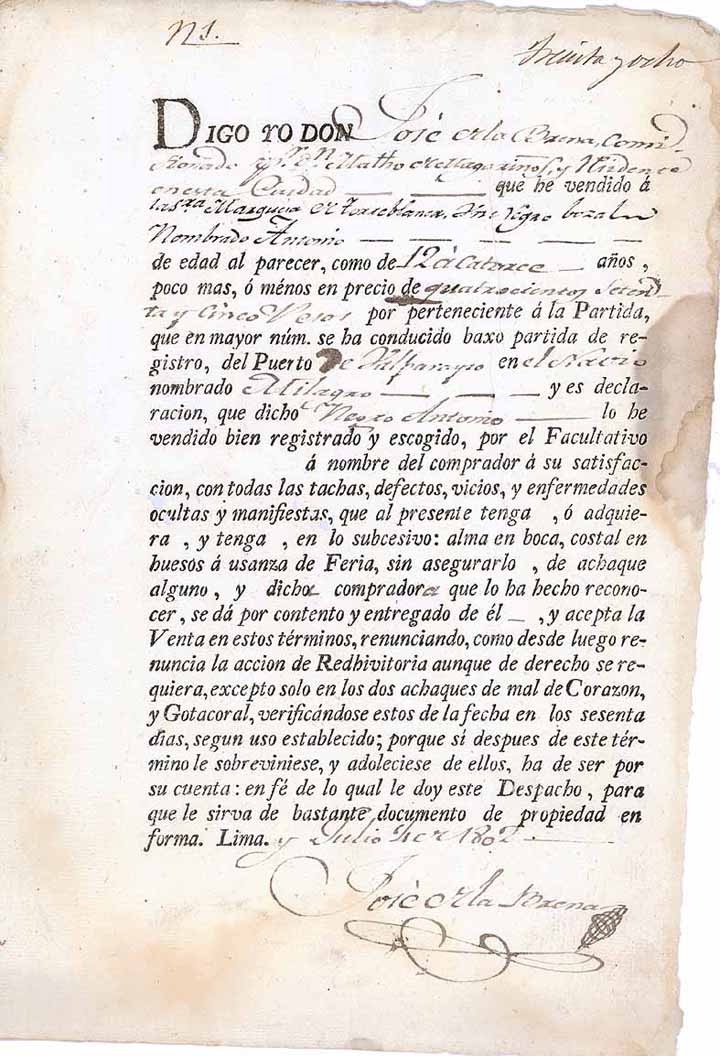 N 1.
Treinta y ocho
DIGO YO DON José de la Baena, Comi-
sionado pr. Dn. Matho y Recidente
en esta Ciudad — — que he vendido á
la Sra. Marquesa de Torreblanca, Un negro bozal
Nombrado Antonio — — — — —
de edad al parecer, como de 12 á Catorce — años,
poco mas, ó ménos en precio de quatrocientos Seten-
ta y Cinco Pesos por perteneciente á la Partida,
que en mayor núm. se ha conducido baxo partida de re-
gistro, del Puerto De Valparayso en el Navio
nombrado Milagro — — — y es decla-
racion, que dicho Negro Antonio — lo he
vendido bien registrado y escogido, por el Facultativo
á nombre del comprador á su satisfac-
cion, con todas las tachas, defectos, vicios, y enfermedades
ocultas y manifiestas, que al presente tenga , ó adquie-
ra , y tenga , en lo subcesivo: alma en boca, costal en
huesos á usanza de Feria, sin asegurarlo , de achaque
alguno, y dicha compradora que lo ha hecho recono-
cer, se dá por contento y entregado de él —, y acepta la
Venta en estos términos, renunciando, como desde luego re-
nuncia la accion de Redhivitoria aunque de derecho se re-
quiera, excepto solo en los dos achaques de mal de Corazon,
y Gotacoral, verificándose estos de la fecha en los sesenta
dias, segun uso establecido; porque si despues de este tér-
mino le sobreviniese, y adoleciese de ellos, ha de ser por
su cuenta: en fé de lo qual le doy este Despacho, para
que le sirva de bastante documento de propiedad en
forma. Lima. y Julio de 1802 —
José de la Baena